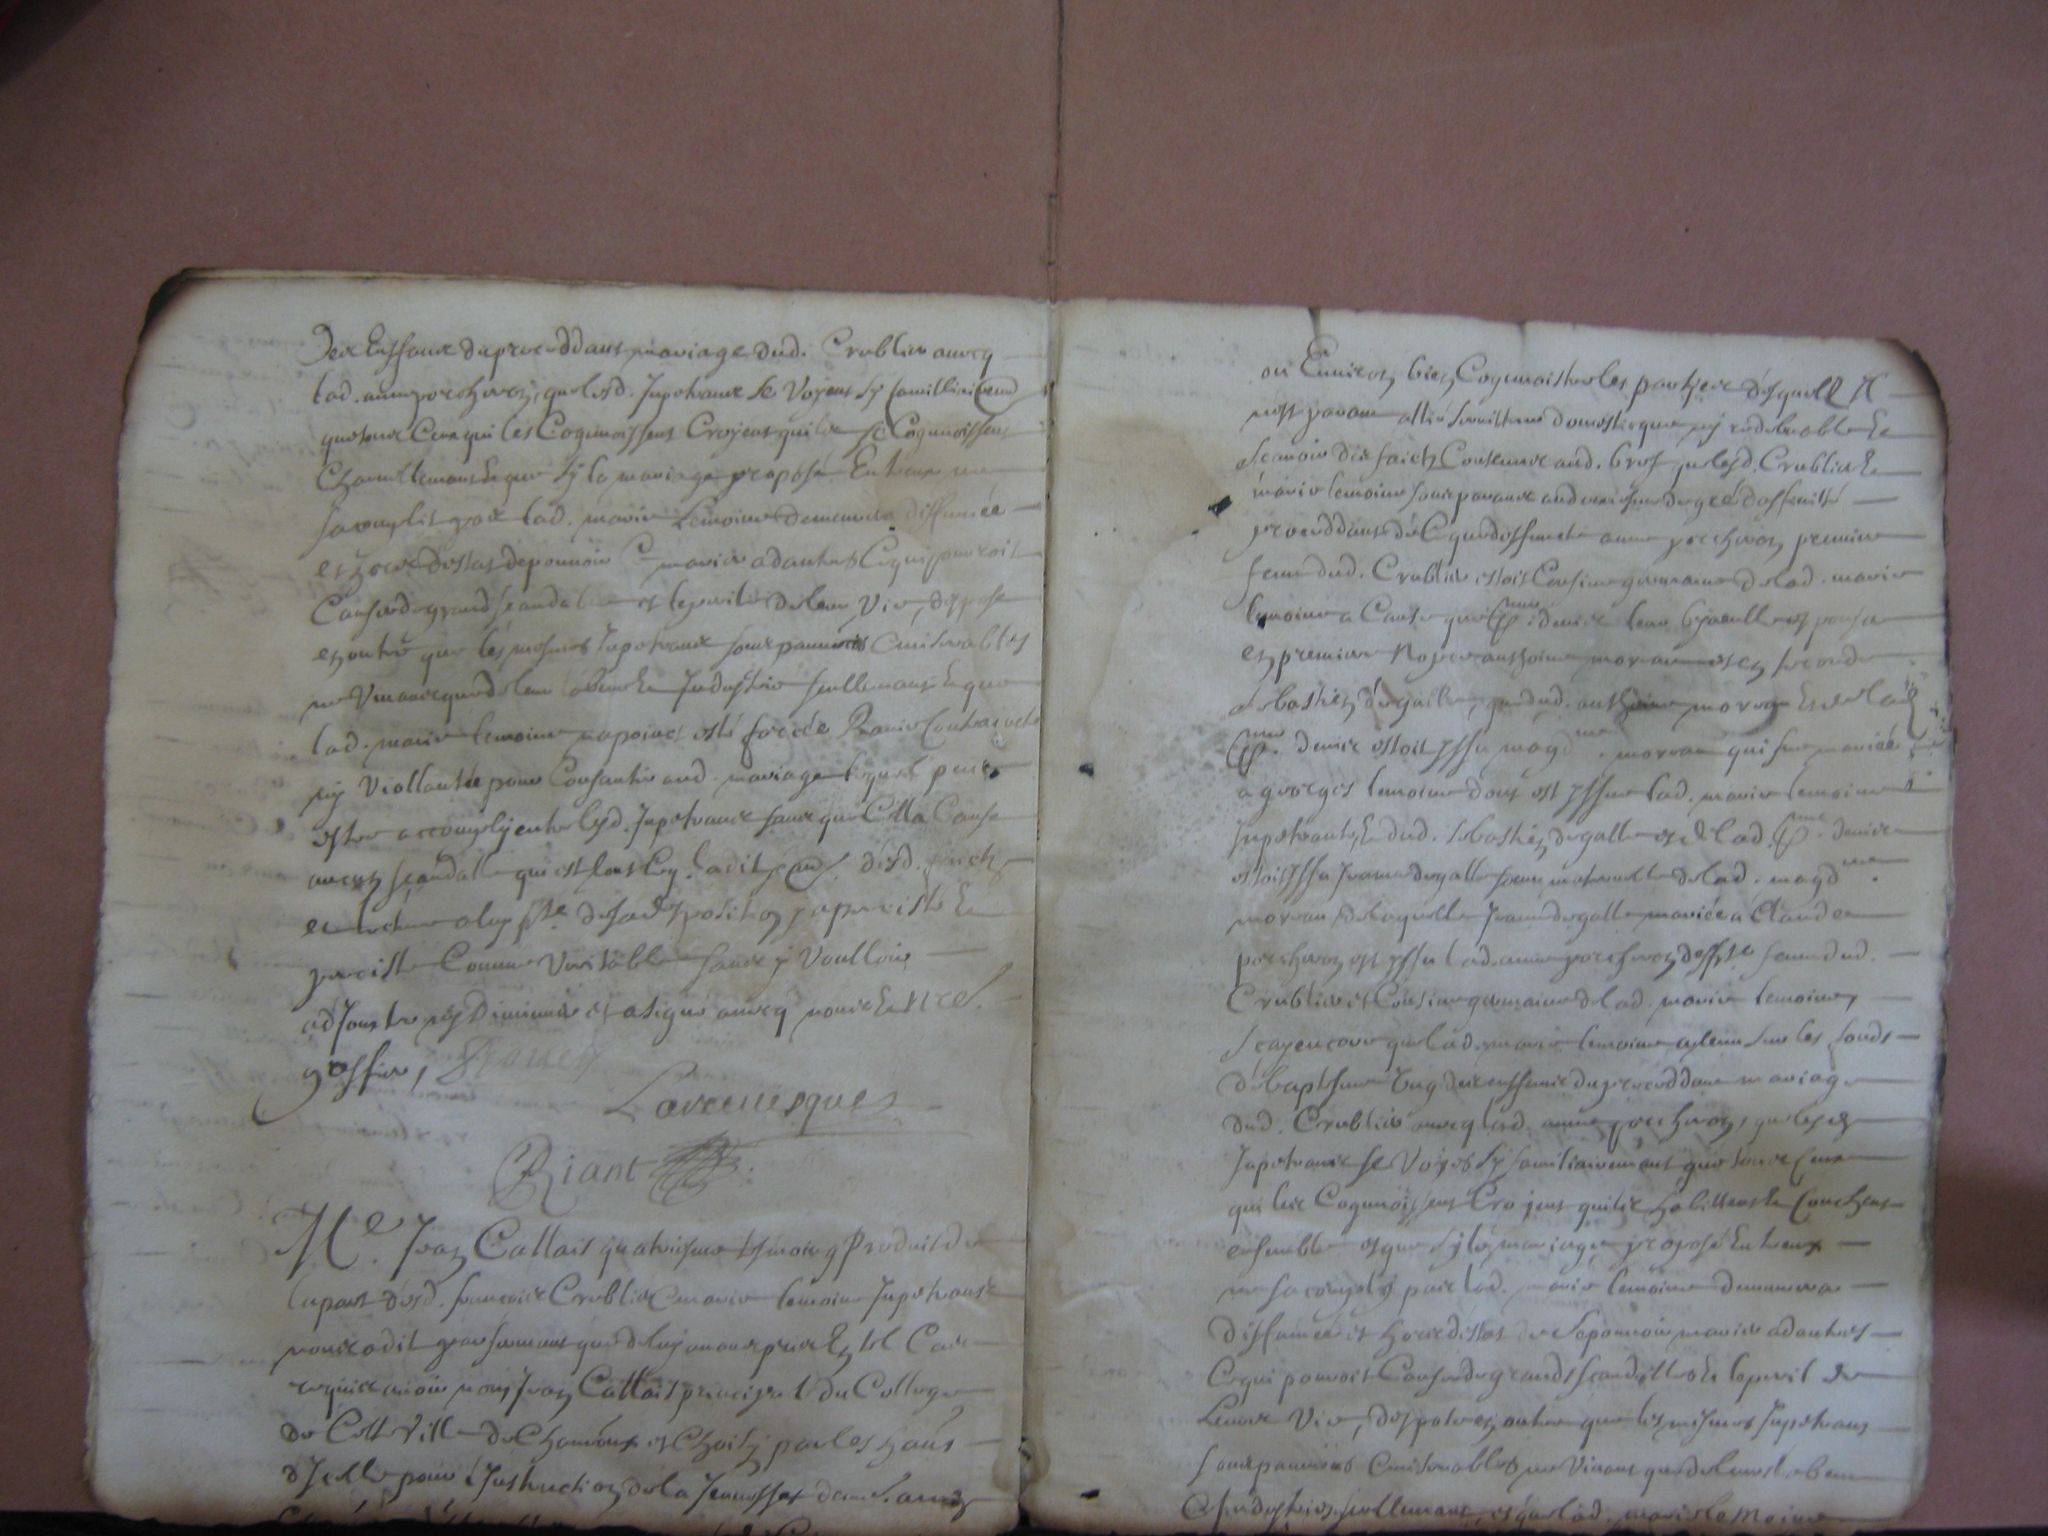 des Enffans du proceddant mariage dud. Crublier avecq
lad. anne porcheron, que lesd. Inpetrans se Voyent sy familliairemt
que tous Ceux qui les Cognoissent Croyent quils se Cognoissent
Charnellemant Et que sy le mariage proposé Entreux ne
saconplit par lad. marie Lemoine demeurera diffamée
et hors destat de pouvoir se marier a dautres Ce qui pouroit
Causer de grand scandale et le peril de leur Vie, depose
en outre que les mesmes Inpetrans sont pauvres Et miserables
ne Vivant que de leur labeur Et Industrie seullemant Et que
lad. marie lemoine na point esté forcée Ravie Contrainte
ny Viollantée pour Consantir aud. mariage lequel peut
estre accomply entre lesd. Inpetrans sans que Cella Cause
aucun scandalle qui est tout Ce quil a dit scav. desd. faicts
et lecture a luy fte de sa depposition y a persisté Et
persiste Comme Veritable sans y Voulloir
adjouster ny Diminuer et a signé avecq nous Et nre
greffier,
Lavenesques
Riant
Me. Jean Callais quatriesme tesmoing Produit de
la part desd. francois Crublier Et marie lemoine Inpetrans
nous a dit par sermant que de luy avons pris En tel Cas
requis avoir nom Jean Callais principal du College
de Cette Ville de Chau et Choisy par les habans
dJcelle pour lInstruction de la Jeunesse
ou Environ bien Cognoistre les partyes desquelles Il
nest parant allié serviteur domesticque ny redebvable Et
scavoir des faicts Contenus aud. bref que lesd. Crublier Et
marie lemoine sont parans au degré daffinité
proceddant de Ce que deffuncte anne porcheron premiere
feme dud. Crublier estoit Cousine germaine de lad. marie
lemoine a Cause que denis leur bisaeulle espousa
en premiere Nopces anthoine moreau et en seconde
sebastien degalle, que dud. anthoine moreau Et de lad.
denis estoit Issu magdne. moreau qui fut mariée
a georges lemoine dont est Issue lad. marie lemoine
Inpetrante, Et dud. sebastien degalle et de lad. denis
estoit Issu Jeanne degalle soeur maternelle de lad. magdne.
moreau, de laquelle Jeanne degalle mariée a Claude
porcheron est Issu lad. anne porcheron deffte feme dud.
Crublier et Cousine germaine de lad. marie lemoine,
scay encore que lad. marie lemoine a tenu sur les fonds
de baptesme Ung des enffans du proceddant mariage
dud. Crublier avecq lad. anne porcheron, que lesd.
Inpetrans se Voyent sy familiairemant que tous Ceux
qui les Cognoissent Croyent quils habittent Et Couchent
ensemble et que sy le mariage proposé Entreux
ne sacomply par lad. marie lemoine demeurera
diffamée et hors destat de se pouvoir marier a dautres
Ce qui pouroit Causer de grands scandalles Et le peril de
Leurs Vie, depose en outre que les mesmes Inpetrans
sont pauvres Et miserables ne Vivant que de leur labeur
Et Industrie seullemant, et que lad. marie le Moine